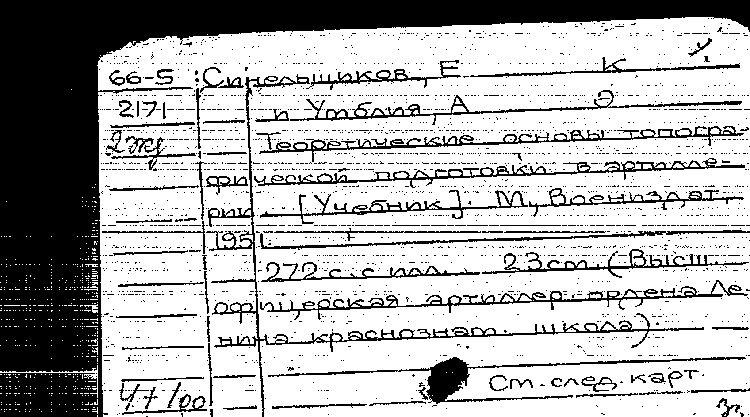 66-5 Синельщиков, Е К
2171 и Утблия, А Э
2жд Теоретические основы топогра-
фической подготовки в артилле-
рии. [Учебник]. М, Воениздат,
1951.
272 с. с илл. 23 см. (Высш.
офицерская артиллер. ордена Ле-
нина краснознам. школа).
См. след. карт.